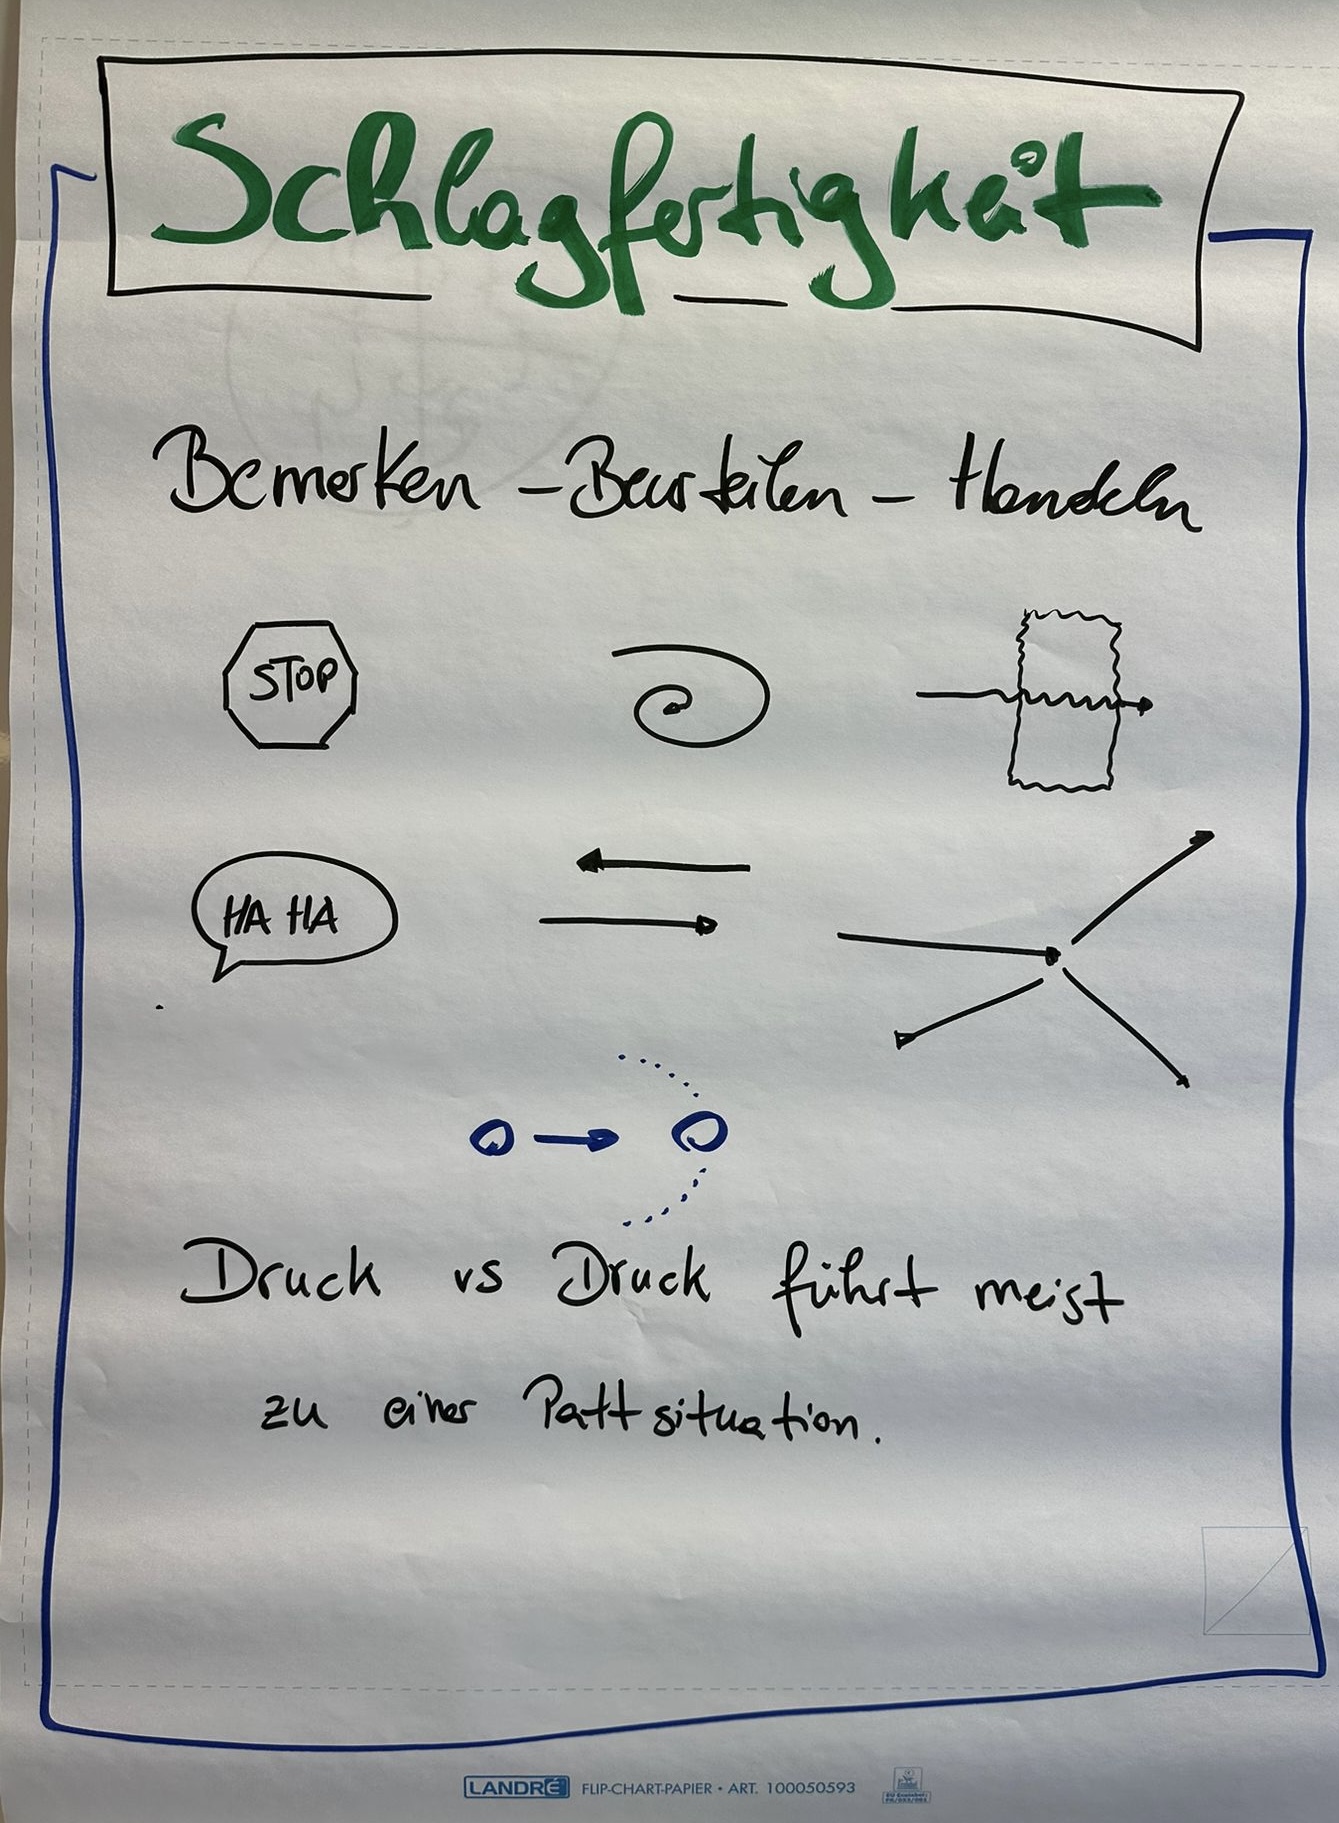 Schlagfertigkeit
Bemerken – Beurteilen – Handeln
STOP
HA HA
Druck vs Druck führt meist
zu einer Pattsituation.
LANDRÉ FLIP-CHART-PAPIER • ART. 100050593